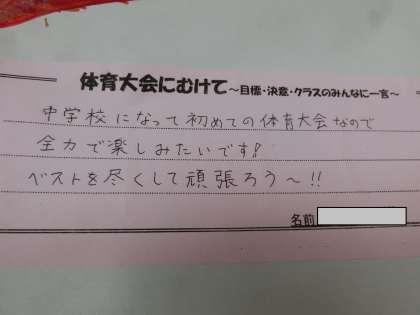 体育大会にむけて～目標・決意・クラスのみんなに一言～
中学校になって初めての体育大会なので
全力で楽しみたいです!
ベストを尽くして頑張ろう〜!!
名前